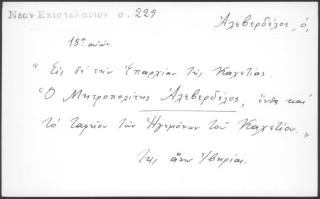 Νεον Επιστολαριον σ. 229
Ἀλεβερδόλος, ὁ,
18ος αἰών.
"Εἰς δὲ τὴν Ἐπαρχίαν τῆς Καχετίας.
Ὁ Μητροπολίτης Ἀλεβερδόλος, ἔνθα καὶ
τὸ ταμεῖον τῶν Ἡγεμόνων τοῦ Καχετίου."
τῆς ἄνω Ἰβηρίας.